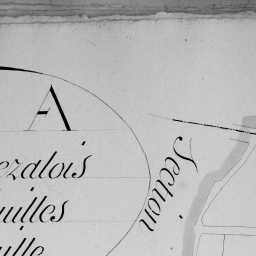 A
ezalois
uilles
uille
Section